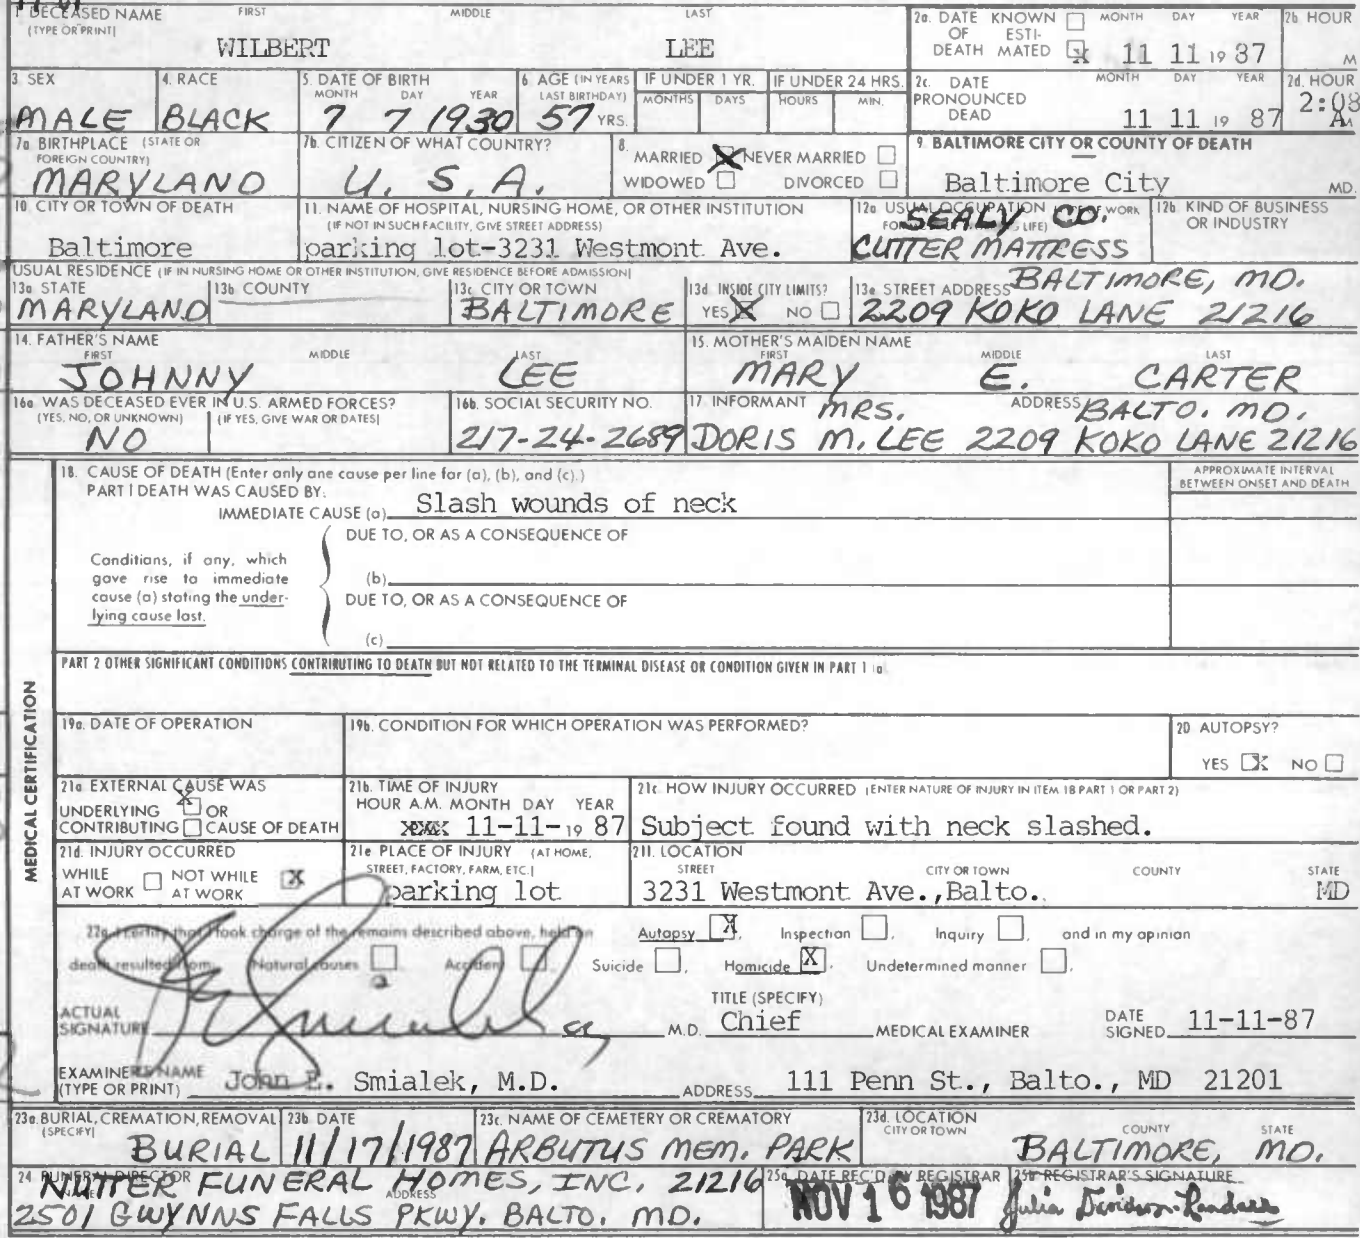 1 DECEASED NAME FIRST MIDDLE LAST
(TYPE OR PRINT)
WILBERT LEE
2a. DATE KNOWN OF ESTI- DEATH MATED X MONTH DAY YEAR 11 11 19 87
2b HOUR M
3 SEX MALE
4. RACE BLACK
5. DATE OF BIRTH MONTH DAY YEAR 7 7 1930
6 AGE (IN YEARS LAST BIRTHDAY) 57 YRS.
IF UNDER 1 YR. MONTHS DAYS
IF UNDER 24 HRS. HOURS MIN.
2c. DATE PRONOUNCED DEAD MONTH DAY YEAR 11 11 19 87
2d. HOUR 2:08 A M
7a BIRTHPLACE (STATE OR FOREIGN COUNTRY) MARYLAND
7b. CITIZEN OF WHAT COUNTRY? U. S. A.
8. MARRIED X NEVER MARRIED
WIDOWED DIVORCED
9. BALTIMORE CITY OR COUNTY OF DEATH
Baltimore City MD.
10. CITY OR TOWN OF DEATH
Baltimore
11. NAME OF HOSPITAL, NURSING HOME, OR OTHER INSTITUTION
(IF NOT IN SUCH FACILITY, GIVE STREET ADDRESS)
parking lot-3231 Westmont Ave.
12a USUAL OCCUPATION WORK LIFE)
SEALY CO.
CUTTER MATTRESS
12b. KIND OF BUSINESS OR INDUSTRY
USUAL RESIDENCE (IF IN NURSING HOME OR OTHER INSTITUTION, GIVE RESIDENCE BEFORE ADMISSION)
13a STATE MARYLAND
13b COUNTY
13c CITY OR TOWN BALTIMORE
13d INSIDE CITY LIMITS? YES X NO
13e STREET ADDRESS BALTIMORE, MD.
2209 KOKO LANE 21216
14. FATHER'S NAME FIRST MIDDLE LAST
JOHNNY LEE
15. MOTHER'S MAIDEN NAME FIRST MIDDLE LAST
MARY E. CARTER
16a WAS DECEASED EVER IN U.S. ARMED FORCES?
(YES, NO, OR UNKNOWN) (IF YES, GIVE WAR OR DATES)
NO
16b. SOCIAL SECURITY NO.
217-24-2689
17 INFORMANT MRS. ADDRESS BALTO. MD.
DORIS M. LEE 2209 KOKO LANE 21216
MEDICAL CERTIFICATION
18. CAUSE OF DEATH (Enter only one cause per line for (a), (b), and (c).)
APPROXIMATE INTERVAL BETWEEN ONSET AND DEATH
PART I DEATH WAS CAUSED BY:
IMMEDIATE CAUSE (a) Slash wounds of neck
DUE TO, OR AS A CONSEQUENCE OF
Conditions, if any, which gave rise to immediate cause (a) stating the under- lying cause last.
(b)
DUE TO, OR AS A CONSEQUENCE OF
(c)
PART 2 OTHER SIGNIFICANT CONDITIONS CONTRIBUTING TO DEATH BUT NOT RELATED TO THE TERMINAL DISEASE OR CONDITION GIVEN IN PART 1 (a)
19a. DATE OF OPERATION
19b. CONDITION FOR WHICH OPERATION WAS PERFORMED?
20 AUTOPSY?
YES X NO
21a EXTERNAL CAUSE WAS
UNDERLYING X OR
CONTRIBUTING CAUSE OF DEATH
21b. TIME OF INJURY
HOUR A.M. MONTH DAY YEAR
11-11- 19 87
21c HOW INJURY OCCURRED (ENTER NATURE OF INJURY IN ITEM 18 PART 1 OR PART 2)
Subject found with neck slashed.
21d. INJURY OCCURRED
WHILE AT WORK NOT WHILE AT WORK X
21e PLACE OF INJURY (AT HOME, STREET, FACTORY, FARM, ETC.)
parking lot
21f. LOCATION STREET CITY OR TOWN COUNTY STATE
3231 Westmont Ave.,Balto. MD
22a I certify that I took charge of the remains described above, held an Autopsy X, Inspection , Inquiry , and in my opinion
death resulted from: Natural causes Accident , Suicide , Homicide X , Undetermined manner .
ACTUAL SIGNATURE M.D. TITLE (SPECIFY) Chief MEDICAL EXAMINER DATE SIGNED 11-11-87
EXAMINER'S NAME (TYPE OR PRINT) John E. Smialek, M.D. ADDRESS 111 Penn St., Balto., MD 21201
23a. BURIAL, CREMATION, REMOVAL (SPECIFY) BURIAL
23b DATE 11/17/1987
23c. NAME OF CEMETERY OR CREMATORY ARBUTUS MEM. PARK
23d. LOCATION CITY OR TOWN COUNTY STATE
BALTIMORE, MD.
24 FUNERAL DIRECTOR NAME ADDRESS
NUTTER FUNERAL HOMES, INC. 21216
2501 GWYNNS FALLS PKWY. BALTO. MD.
25a DATE REC'D BY REGISTRAR
NOV 16 1987
25b REGISTRAR'S SIGNATURE
Julia Davidson-Randall